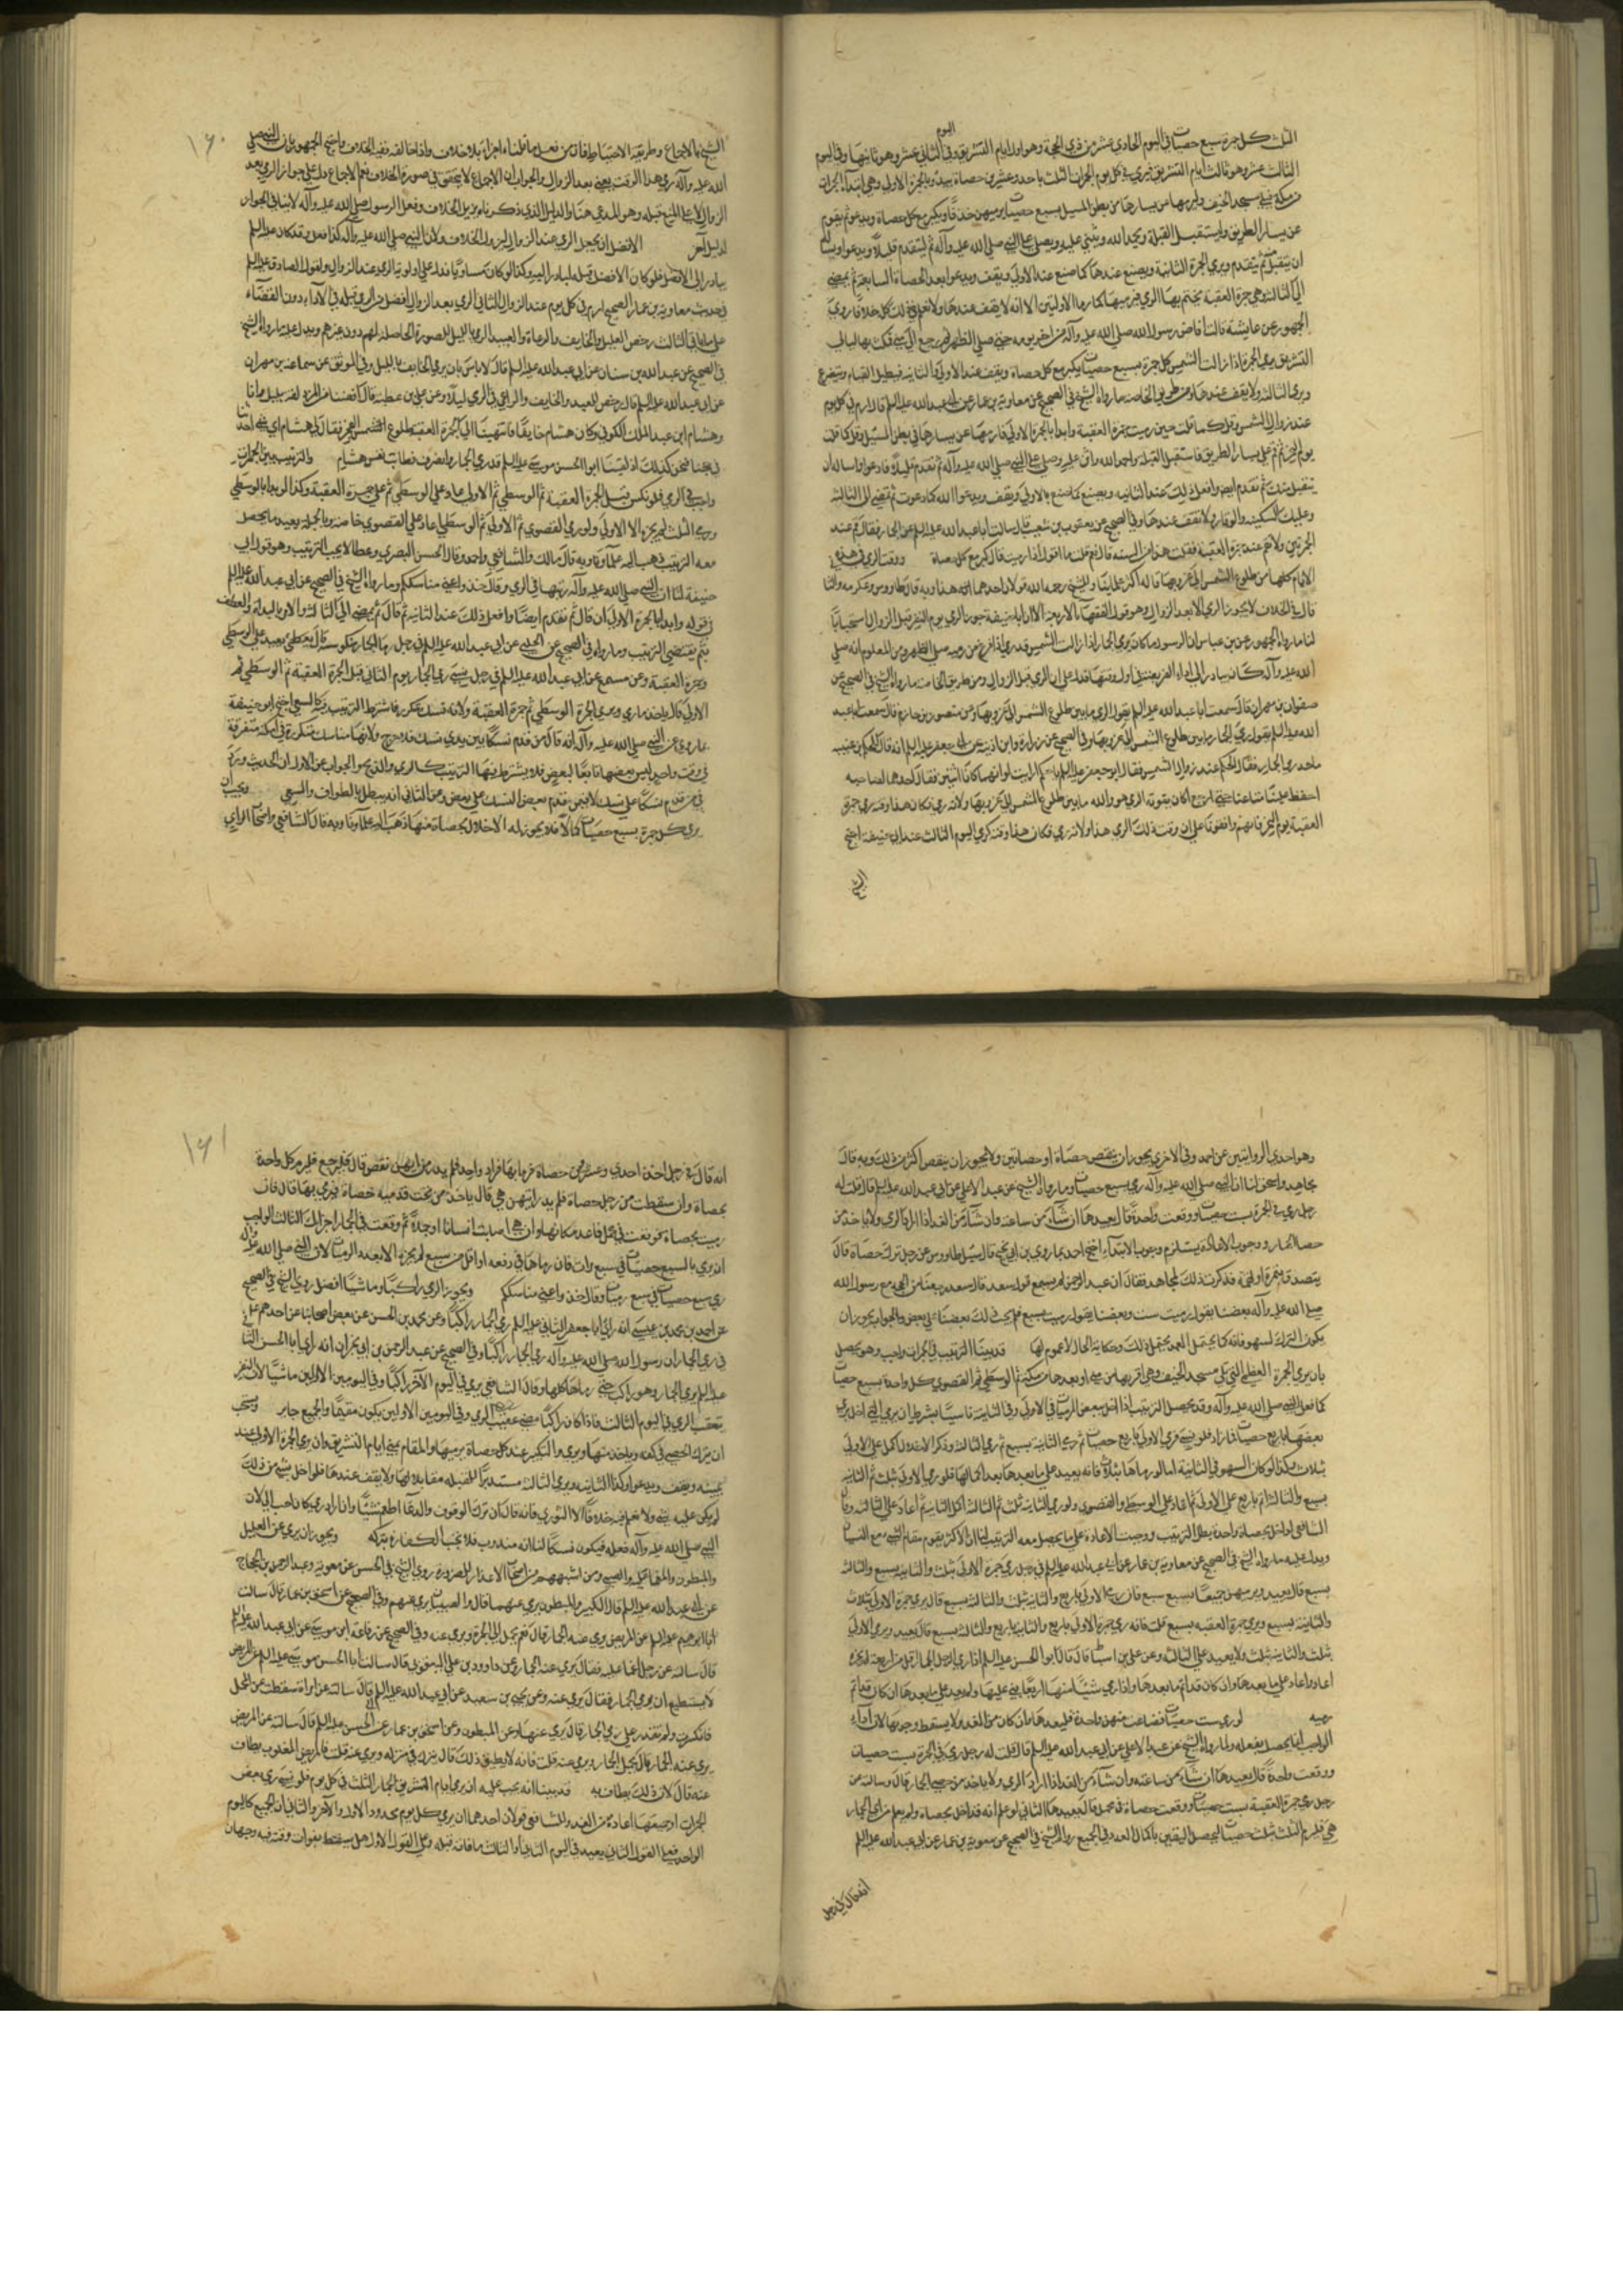 الثلث كل جمرة سبع حصيات في اليوم الحادي عشر من ذي الحجة وهو اول ايام التشريق وفي اليوم الثاني عشر وهو ثانيها وفي اليوم
الثالث عشر وهو ثالث ايام التشريق فيرمي في كل يوم الجمرات الثلث باحد وعشرين حصاة يبدا بالجمرة الاولى وهي ابعد الجمرات
من مكة تلي مسجد الخيف وليرمها من يسارها من بطن المسيل بسبع حصيات يرميهن خذفا ويكبر مع كل حصاة ويدعو ثم يقوم
عن يسار الطريق ويستقبل القبلة ويحمد الله ويثني عليه ويصلي على النبي صلى الله عليه وآله ثم ليتقدم قليلا ويدعو ويساله
ان يتقبل ثم يتقدم ويرمي الجمرة الثانية ويصنع عندها كما صنع عند الاولى ويقف ويدعو بعد الحصاة السابعة ثم يمضي
الى الثالثة وهي جمرة العقبة يختم بها الرمي فيرميها كما رمى الاوليين الا انه لا يقف عندها ولا نعلم في ذلك كله خلافا روى
الجمهور عن عايشة قالت افاض رسول الله صلى الله عليه وآله من اخر يومه حين صلى الظهر ثم رجع الى منى فمكث بها ليالي
التشريق يرمي الجمرة اذا زالت الشمس كل جمرة بسبع حصيات يكبر مع كل حصاة ويقف عند الاولى والثانية فيطيل القيام ويتضرع
ويرمي الثالثة ولا يقف عندها ومن طريق الخاصة ما رواه الشيخ في الصحيح عن معاوية بن عمار عن ابي عبد الله عليه السلم قال ارم في كل يوم
عند زوال الشمس وقل كما قلت حين رميت جمرة العقبة وابدا بالجمرة الاولى فارمها عن يسارها في بطن المسيل وقل كما قلت
يوم النحر ثم قم على يسار الطريق فاستقبل القبلة واحمد الله واثن عليه وصل على النبي صلى الله عليه وآله ثم تقدم قليلا فادعو واساله ان
يتقبل منك ثم تقدم ايضا وافعل ذلك عند الثانية ويصنع كما صنع بالاولى ويقف ويدعو الله كما دعوت ثم تمضي الى الثالثة
وعليك السكينة والوقار ولا تقف عندها وفي الصحيح عن يعقوب بن شعيب قال سالت ابا عبد الله عليه السلم عن الجمار فقال قم عند
الجمرتين ولا تقم عند جمرة العقبة فقلت هذا من السنة قال نعم قلت ما اقول اذا رميت قال كبر مع كل حصاة ووقت الرمي في هذه
الايام كلها من طلوع الشمس الى غروبها قاله اكثر علمائنا وللشيخ رحمه الله قولان احدهما انه هذا وبه قال طاوس وعكرمة والثاني
قال في الخلاف لا يجوز الرمي الا بعد الزوال وهو قول الفقهاء الاربعة الا ان ابا حنيفة جوز الرمي يوم النفر قبل الزوال استحبابا
لنا ما رواه الجمهور عن بن عباس ان الرسول ما كان يرمي الجمار اذا زالت الشمس قدر ما اذا فرغ من رميه صلى الظهر ومن المعلوم انه صلى
الله عليه وآله كان يبادر الى اداء الفريضة في اول وقتها فدل على ان الرمي قبل الزوال ومن طريق الخاصة ما رواه الشيخ في الصحيح عن
صفوان بن مهران قال سمعت ابا عبد الله عليه السلم يقول الرمي ما بين طلوع الشمس الى غروبها وعن منصور بن حازم قال سمعت ابا عبد
الله عليه السلم يقول رمي الجمار ما بين طلوع الشمس الى غروبها وفي الصحيح عن زرارة وابن اذينة عن ابي جعفر عليه السلم انه قال للحكم بن عتيبة
ما حد رمي الجمار فقال الحكم عند زوال الشمس فقال ابو جعفر عليه السلم يا حكم ارايت لو انهما كانا اثنين فقال احدهما لصاحبه
احفظ علينا متاعنا حتى ارجع اكان يفوته الرمي هو والله ما بين طلوع الشمس الى غروبها ولانه رمي فكان هذا وقته كرمي جمرة
العقبة يوم النحر فانهم وافقونا على ان وقت ذلك الرمي هذا ولانه رمي فكان هذا وقته كرمي اليوم الثالث عند ابي حنيفة احتج
الشيخ
الشيخ بالاجماع وطريقة الاحتياط فان من فعل ما قلناه اجزاه بلا خلاف واذا خالفه ففيه الخلاف واحتج الجمهور بان النبي صلى
الله عليه وآله رمى هذا الوقت يعني بعد الزوال والجواب ان الاجماع لا يتحقق في صورة الخلاف نعم الاجماع دل على جواز الرمي بعد
الزوال لا على المنع قبله وهو المدعى هنا والدليل الذي ذكرناه يزيل الخلاف وفعل الرسول صلى الله عليه وآله لا ينافي الجواز
لدليل آخر الافضل ان يجعل الرمي عند الزوال ليزول الخلاف ولان النبي صلى الله عليه وآله كذا فعل وقد كان عليه السلم
يبادر الى الافضل فلو كان الافضل قبله لبادر اليه وكذا لو كان مساويا فدل على اولوية الرمي عند الزوال ولقول الصادق عليه السلم
في حديث معاوية بن عمار الصحيح ارم في كل يوم عند الزوال الثاني الرمي بعد الزوال افضل من الرمي قبله في الاداء دون القضاء
على ما ياتي الثالث رخص للعليل والخايف والرعاة والعبيد الرمي بالليل للضرورة الحاصلة لهم دون غيرهم ويدل عليه ما رواه الشيخ
في الصحيح عن عبد الله بن سنان عن ابي عبد الله عليه السلم قال لا باس بان يرمي الخايف بالليل وفي الموثق عن سماعة بن مهران
عن ابي عبد الله عليه السلم انه قال رخص للعبد والخايف والراعي في الرمي ليلا وعن علي بن عطية قال افضنا من المزدلفة بليل وانا
وهشام ابن عبد الملك الكوفي وكان هشام خايفا فانتهينا الى الجمرة العقبة طلوع الفجر فقال لي هشام اي شي احدثنا
في حجنا فنحن كذلك اذ لقينا ابو الحسن موسى عليه السلم قد رمى الجمار وانصرف فطابت نفس هشام والترتيب بين الجمرات
واجب في الرمي فلو نكس فبدا بجمرة العقبة ثم الوسطى ثم الاولى اعاد على الوسطى ثم على جمرة العقبة وكذا لو بدا بالوسطى
ورمى الثلث لم يجزه الا الاولى ولو رمى القصوى ثم الاولى ثم الوسطى اعاد على القصوى خاصة وبالجملة يعيد ما يحصل
معه الترتيب ذهب اليه علماؤنا وبه قال مالك والشافعي واحمد وقال الحسن البصري وعطا لا يجب الترتيب وهو قول ابي
حنيفة لنا ان النبي صلى الله عليه وآله رتبها في الرمي وقال خذوا عني مناسككم وما رواه الشيخ في الصحيح عن ابي عبد الله عليه السلم
في قوله وابدا بالجمرة الاولى ان قال ثم تقدم ايضا وافعل ذلك عند الثانية ثم قال ثم يمضي الى الثالثة والامر بالبداة والعطف
بثم يقتضي الترتيب وما رواه في الصحيح عن الحلبي عن ابي عبد الله عليه السلم في رجل رمى الجمار منكوسة قال يعيد على الوسطى
وجمرة العقبة وعن مسمع عن ابي عبد الله عليه السلم في رجل نسي رمي الجمار يوم الثاني فبدا بجمرة العقبة ثم الوسطى ثم
الاولى قال ياخذ ما رمى ويرمي الجمرة الوسطى ثم جمرة العقبة ولانه نسك متكرر فاشترط الترتيب فيه كالسعي احتج ابو حنيفة
بما روي عن النبي صلى الله عليه وآله انه قال من قدم نسكا بين يدي نسك فلا حرج ولانها مناسك متكررة في امكنة متفرقة
في وقت واحد ليس بعضها تابعا لبعض فلا يشترط فيها الترتيب كالرمي والذبح والجواب عن الاول ان الحديث ورد
في من قدم نسكا على نسك لا فيمن قدم بعض النسك على بعض وعن الثاني انه يبطل بالطواف والسعي ويجب ان
يرمي كل جمرة بسبع حصيات كملا فلا يجوز له الاخلال بحصاة منها ذهب اليه علماؤنا وبه قال الشافعي واصحاب الراي
وهو احدى الروايتين عن احمد وفي الاخرى يجوز ان ينقص حصاة او حصاتين ولا يجوز ان ينقص اكثر من ذلك وبه قال
مجاهد واسحق لنا ان النبي صلى الله عليه وآله رمى بسبع حصيات وما رواه الشيخ عن عبد الاعلى عن ابي عبد الله عليه السلم قال قلت له
رجل رمى في الجمرة بست حصيات ووقعت واحدة قال يعيدها ان شاء من ساعته وان شاء من الغد اذا اراد الرمي ولا ياخذ من
حصا الجمار ووجوب الاعادة يستلزم وجوب الابتداء احتج احمد بما روى بن ابي نجيح قال سئل طاوس عن رجل ترك حصاة قال
يتصدق بتمرة او لقمة فذكرت ذلك لمجاهد فقال ان عبد الرحمن لم يسمع قول سعد قال سعد رجعنا من الحج مع رسول الله
صلى الله عليه وآله بعضنا يقول رميت ست وبعضنا يقول رميت بسبع فلم يعب ذلك بعضنا على بعض والجواب يجوز ان
يكون الترك لسهو فانه كما يحتمل العمد يحتمل ذلك وحكاية الحال لا عموم لها قد بينا ان الترتيب في الجمرات واجب وهو يحصل
بان يرمي الجمرة العظمى التي تلي مسجد الخيف وهي اقربهن من منى وابعدها من مكة ثم الوسطى ثم القصوى كل واحدة بسبع حصيات
كما فعل النبي صلى الله عليه وآله وقد يحصل الترتيب اذا اخل ببعض الرميات في الاولى وفي الثانية ناسيا بشرط ان يرمي التي اخل برمي
بعضها باربع حصيات فما زاد فلو نسي فرمى الاولى باربع حصيات ثم رمى الثانية بسبع ثم رمى الثالثة وذكر الاخلال اكمل على الاولى
بثلاث وكذا لو كان السهو في الثانية اما لو رماها بثلاث فانه يعيد على ما بعدها بعد اكمالها فلو رمى الاولى بثلث ثم الثانية
بسبع والثالثة اتم باربع على الاولى ثم اعاد على الوسطى والقصوى ولو رمى الثانية بثلث ثم الثالثة اكمل الثانية ثم اعاد على الثالثة وقال
الشافعي لو اخل بحصاة واحدة بطل الترتيب ووجبت الاعادة على ما يحصل معه الترتيب لنا ان الاكثر يقوم مقام الشي مع النسيان
ويدل عليه ما رواه الشيخ في الصحيح عن معاوية بن عمار عن ابي عبد الله عليه السلم في رجل رمى جمرة الاولى بثلث والثانية بسبع والثالثة
بسبع قال يعيد يرميهن جميعا بسبع سبع فان رمى الاولى باربع والثانية بثلث والثالثة بسبع قال يرمي جمرة الاولى بثلاث
والثانية بسبع ويرمي جمرة العقبة بسبع قلت فانه رمى جمرة الاولى باربع والثانية باربع والثالثة بسبع قال يعيد ويرمي الاولى
بثلث والثانية بثلث ولا يعيد على الثالثة وعن علي بن اسباط قال قال ابو الحسن عليه السلم اذا رمى الرجل الجمار اقل من اربعة لم يجزه
اعاد واعاد على ما بعدها وان كان قد اتم ما بعدها واذا رمى شيئا منها اربعا بنى عليها ولم يعد على ما بعدها ان كان قد اتم
رميه لو رمى ست حصيات فضاعت منهن واحدة فليعدها وان كان من الغد ولا يسقط وجوبها لان اداء
الواجب انما يحصل بفعله ولما رواه الشيخ عن عبد الاعلى عن ابي عبد الله عليه السلم قال قلت له رجل رمى في الجمرة بست حصيات
ووقعت واحدة قال يعيدها ان شاء من ساعته وان شاء من الغد اذا اراد الرمي ولا ياخذ من حصى الجمار قال وسالته عن
رجل رمى جمرة العقبة بست حصيات ووقعت حصاة في محمل قال يعيدها الثاني لو علم انه قد اخل بحصاة ولم يعلم من اي الجمار
هي فليرم الثلث بثلث حصيات ليحصل اليقين باكمال العدد في الجميع رواه الشيخ في الصحيح عن معوية بن عمار عن ابي عبد الله عليه السلم
انه قال في رجل
انه قال في رجل اخذ احدى وعشرين حصاة فرمى بها فزاد واحدة فلم يدر من ايتهن نقص قال فليرجع فليرم كل واحدة
بحصاة وان سقطت من رجل حصاة فلم يدر ايتهن هي قال ياخذ من تحت قدميه حصاة فيرمي بها قال فان
رميت بحصاة فوقعت في محمل فاعد مكانها وان هي اصابت انسانا او جملا ثم وقعت في الجمار اجزاك الثالث الواجب
ان يرمي بالسبع حصيات في سبع مرات فان رماها في دفعة او اقل من سبع لم يجزه الا بعدد الرميات لان النبي صلى الله عليه وآله
رمى سبع حصيات في سبع رميات وقال خذوا عني مناسككم ويجوز الرمي راكبا وماشيا افضل روى الشيخ في الصحيح
عن احمد بن محمد بن عيسى انه راى ابا جعفر الثاني عليه السلم رمى الجمار راكبا وعن محمد بن الحسن عن بعض اصحابنا عن احدهم عليهم السلم
في رمي الجمار ان رسول الله صلى الله عليه وآله رمى الجمار راكبا وفي الصحيح عن عبد الرحمن بن ابي نجران انه راى ابا الحسن الثاني
عليه السلم رمى الجمار وهو راكب حتى رماها كلها وقال الشافعي يرمي في اليوم الآخر راكبا وفي اليومين الاولين ماشيا لان النفر
يتعقب الرمي في اليوم الثالث فاذا كان راكبا مضى عقيب الرمي وفي اليومين الاولين يكون مقيما والجميع جايز ويستحب
ان يترك الحصى في كفه وياخذ منها ويرمي والتكبير عند كل حصاة يرميها والمقام بمنى ايام التشريق وان يرمي الجمرة الاولى عند
يمينه ويقف ويدعو وكذا الثانية ويرمي الثالثة مستدبرا للقبلة مقابلا لها ولا يقف عندها فلو اخل بشي من ذلك
لم يكن عليه شي ولا نعلم فيه خلافا الا الثوري فانه قال ان ترك الوقوف والدعا اطعم شيئا وان اراق دما كان احب الي لان
النبي صلى الله عليه وآله فعله فيكون نسكا لنا انه مندوب فلا يجب الكفارة بتركه ويجوز ان يرمى عن العليل
والمبطون والمغمى عليه والصبي ومن اشبههم من اصحاب الاعذار للضرورة روى الشيخ في الحسن عن معوية وعبد الرحمن بن الحجاج
عن ابي عبد الله عليه السلم قال الكبير والمبطون يرمى عنهما قال والصبيان يرمى عنهم وفي الصحيح عن اسحق بن عمار قال سالت
ابا ابرهيم عليه السلم عن المريض يرمى عنه الجمار قال نعم يحمل الى الجمرة ويرمى عنه وفي الصحيح عن رفاعة ابن موسى عن ابي عبد الله عليه السلم
قال سالته عن رجل اغمي عليه فقال يرمى عنه الجمار وعن داوود بن علي اليعقوبي قال سالت ابا الحسن موسى عليه السلم عن المريض
لا يستطيع ان يرمي الجمار فقال يرمى عنه وعن يحيى بن سعيد عن ابي عبد الله عليه السلم قال سالته عن امراة سقطت عن المحمل
فانكسرت ولم تقدر على رمي الجمار قال يرمى عنها وعن المبطون وعن اسحق بن عمار عن ابي الحسن عليه السلم قال سالته عن المريض
يرمى عنه الجمار قال يحمل الى الجمار ويرمى عنه قلت فانه لا يطيق ذلك قال يترك في منزله ويرمى عنه قلت فالمريض المغلوب يطاف
عنه قال لا ولكن يطاف به قد بينا انه يجب عليه ان يرمي ايام التشريق الجمار الثلث في كل يوم فلو نسي رمي بعض
الجمرات او جميعها اعاده من الغد وللشافعي قولان احدهما ان رمي كل يوم محدود الاول والآخر والثاني ان الجميع كاليوم
الواحد فعلى القول الثاني يعيد في اليوم الثاني او الثالث ما فاته قبله وعلى القول الاول هل يسقط بفوات وقته فيه وجهان